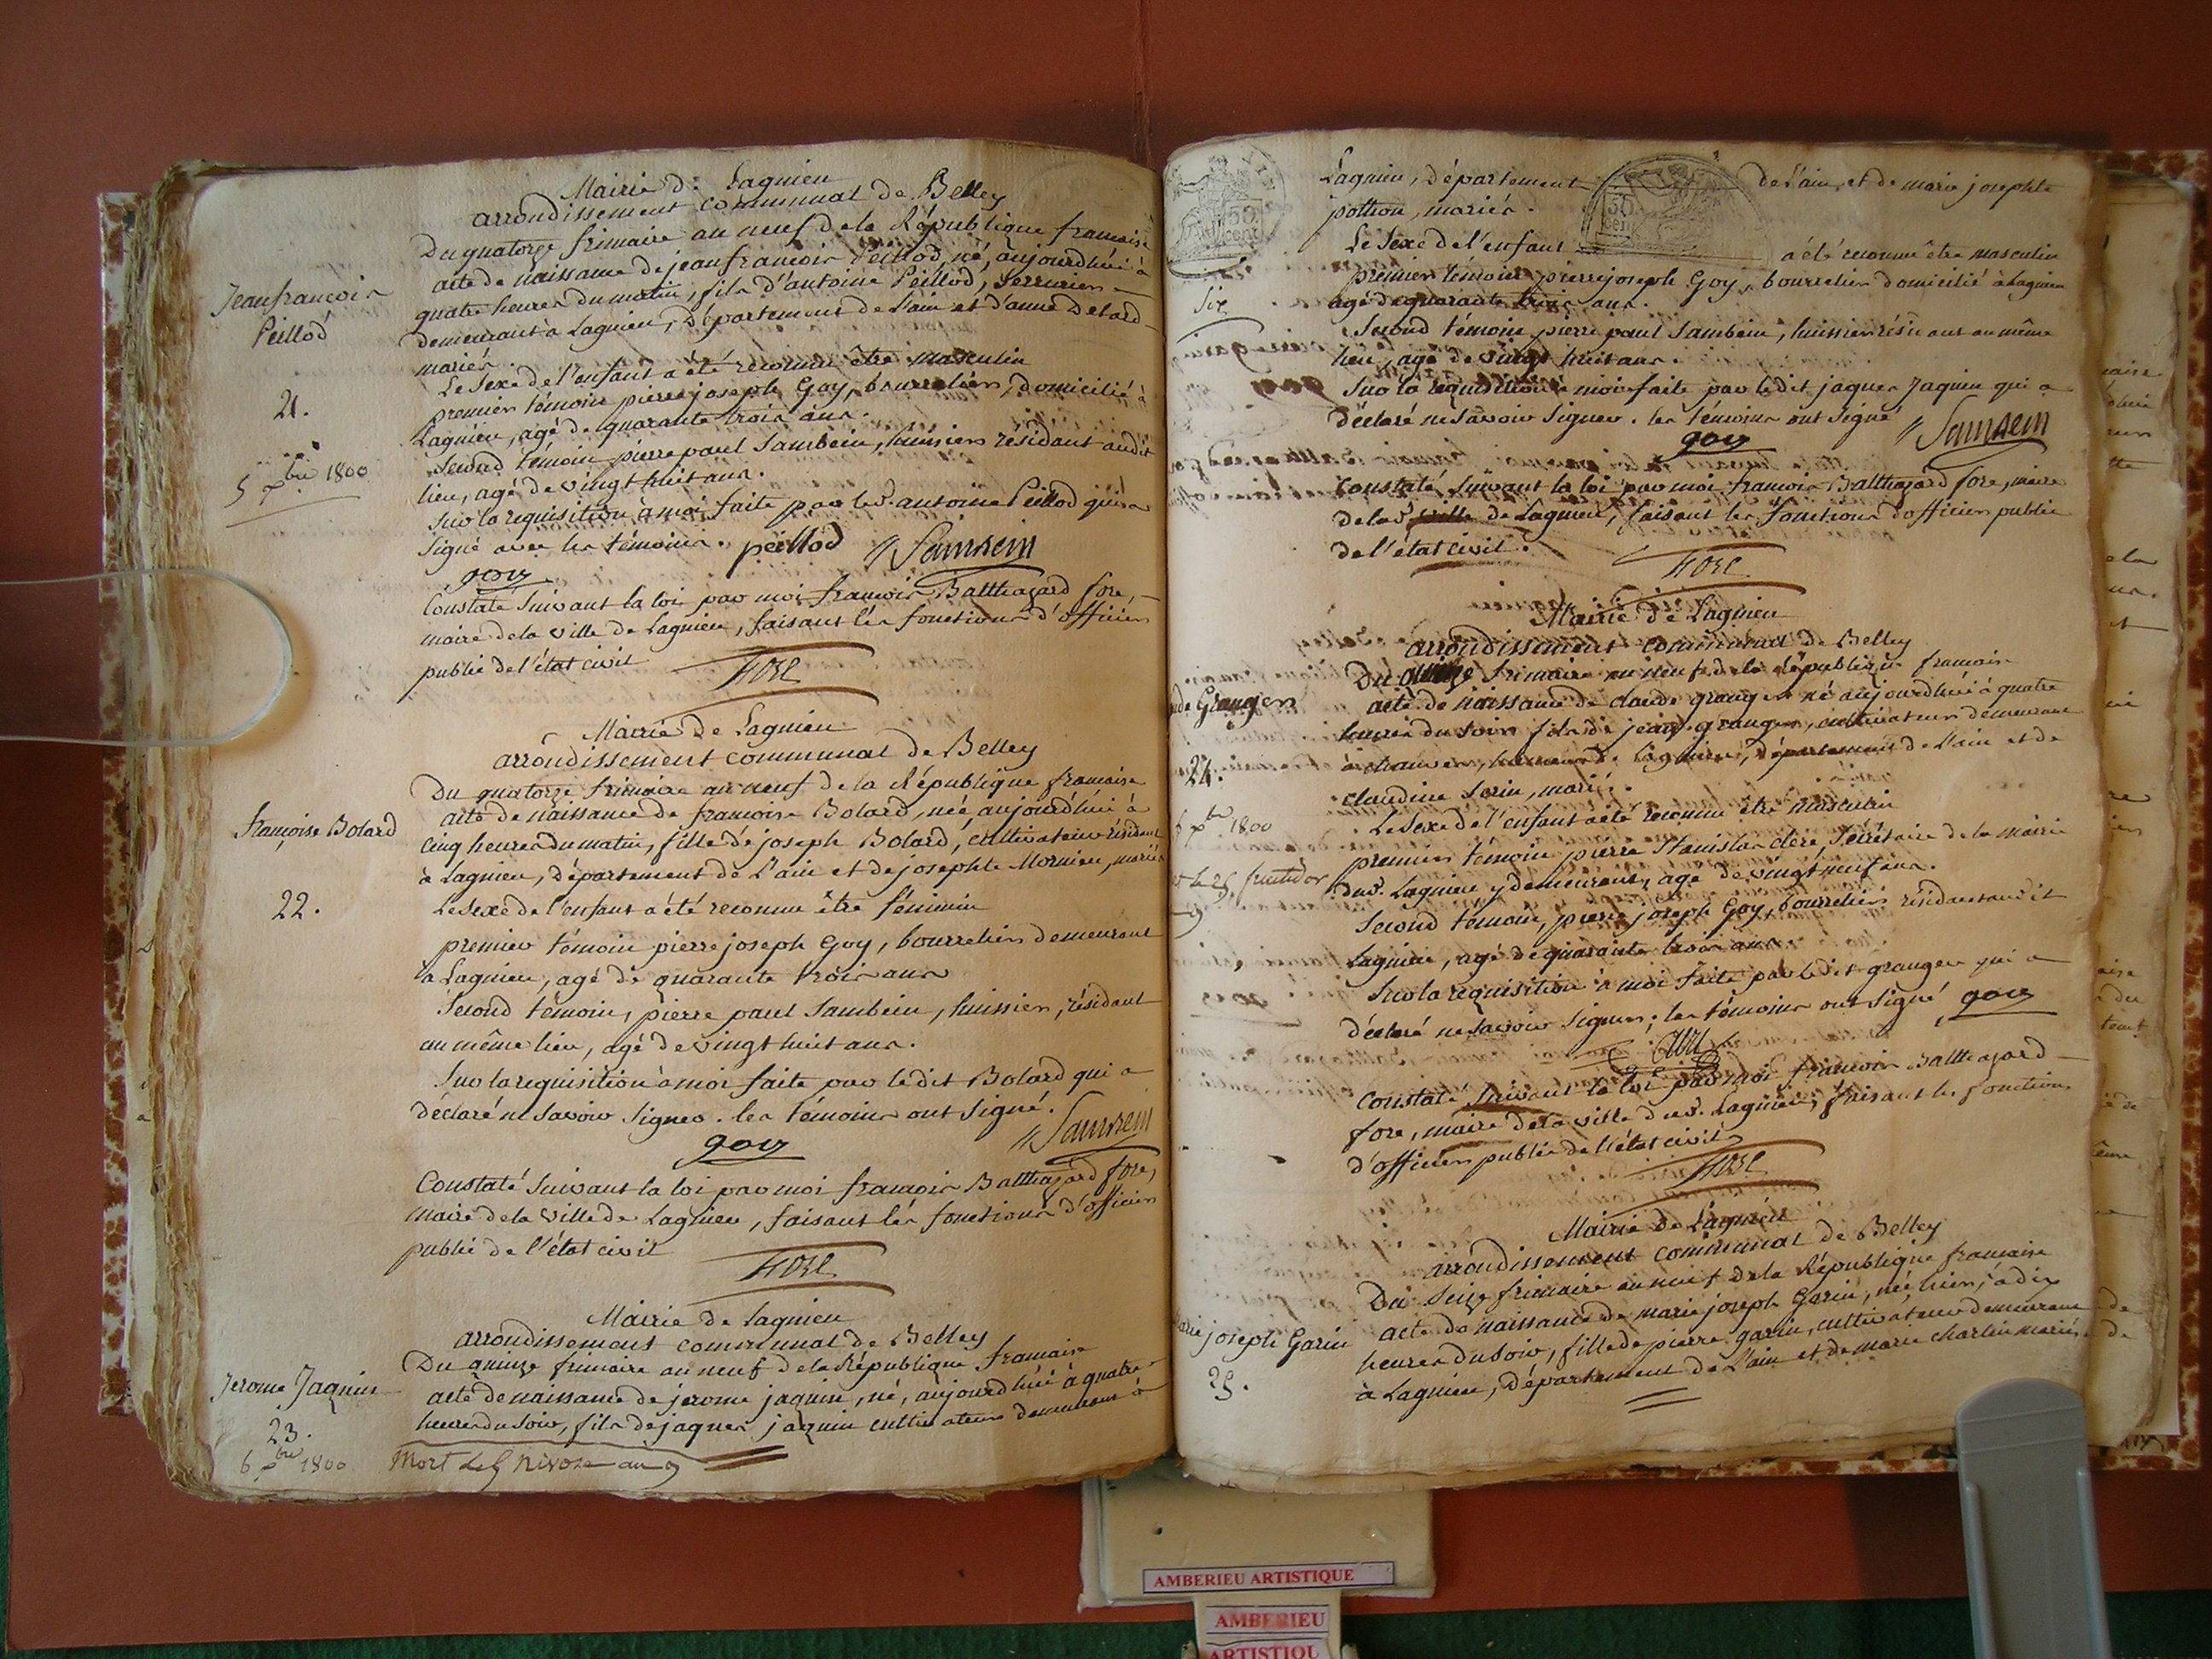 Mairie de Lagnieu
arrondissement communal de Belley
Du quatorze frimaire an neuf de la République francaise
Jean francois
Peillod
21.
5 xbre 1800
acte de naissance de jean francois Peillod, né, aujourdhui à
quatre heures du matin, fils d'antoine Peillod, serrurier
demeurant à Lagnieu, Département de l'ain et d'anne Delard
mariés.
Le Sexe de l'enfant a été reconnu être masculin
premier témoin pierre joseph Goy, bourrelier, domicilié à
Lagnieu, agé de quarante trois ans.
Second témoin pierre paul Sambein, huissier résidant audit
lieu, agé de vingt huit ans.
Sur la requisition à moi faite par led. antoine Peillod qui a
signé avec les témoins. peillod Sambein
goy
Constaté suivant la loi par moi francois Balthazard fore,
maire de la ville de Lagnieu, faisant les fonctions d'officier
public de l'état civil
fore
Mairie de Lagnieu
arrondissement communal de Belley
Du quatorze frimaire an neuf de la République francaise
françoise Bolard
22.
acte de naissance de francoise Bolard, née, aujourdhui à
cinq heures du matin, fille de joseph Bolard, cultivateur résidant
à Lagnieu, département de L'ain et de josephte Mornieu, mariés
Le Sexe de l'enfant a été reconnu être féminin
premier témoin pierre joseph Goy, bourrelier demeurant
à Lagnieu, agé de quarante trois ans
Second témoin, pierre paul Sambein, huissier, résidant
au même lieu, agé de vingt huit ans.
Sur la requisition à moi faite par ledit Bolard qui a
déclaré ne savoir signer. les témoins ont signé.
goy Sambein
Constaté suivant la loi par moi francois Balthazard fore,
maire de la ville de Lagnieu, faisant les fonctions d'officier
public de l'état civil
fore
Mairie de Lagnieu
arrondissement communal de Belley
Du quinze frimaire an neuf de la République francaise
Jerome Jaquin
23.
6 xbre 1800
acte de naissance de jerome jaquin, né, aujourdhui à quatre
heures du soir, fils de jaques jaquin cultivateur demeurant à
Mort le 5 Nivose an 9
Lagnieu, département de L'ain, et de marie josephte
pothon, mariés.
50
cent
30
cent
Six
Le Sexe de l'enfant a été reconnu être masculin
premier témoin, pierre joseph Goy, bourrelier domicilié à Lagnieu
agé de quarante trois ans.
Second témoin pierre paul Sambein, huissier résidant au même
lieu, agé de vingt huit ans.
Sur la requisition à moi faite par ledit jaques Jaquin qui a
déclaré ne savoir signer. les témoins ont signé
goy Sambein
Constaté suivant la loi par moi francois Balthazard fore, maire
de lad. ville de Lagnieu, faisant les fonctions d'officier public
de l'état civil.
fore
Mairie de Lagnieu
arrondissement communal de Belley
Du quinze frimaire an neuf de la République francaise
Granger
24.
6 xbre 1800
le 25 fructidor
9
acte de naissance de claude granger né aujourdhui à quatre
heures du soir fils de jean granger, cultivateur demeurant
à hameau de Lagnieu, département de L'ain et de
claudine Serin, mariés.
Le Sexe de l'enfant a été reconnu être masculin
premier témoin pierre Stanislas clerc, Secrétaire de la mairie
dud. Lagnieu y demeurant, agé de vingt neuf ans.
Second témoin, pierre joseph Goy, bourrelier résidant audit
Lagnieu, agé de quarante trois ans
Sur la requisition à moi faite par ledit granger qui a
déclaré ne savoir signer; les témoins ont signé goy
Clerc
Constaté suivant la loi par moi francois Balthazard
fore, maire de la ville dud. Lagnieu, faisant les fonctions
d'officier public de l'état civil
fore
Mairie de Lagnieu
arrondissement communal de Belley
Du Seize frimaire an neuf de la République francaise
joseph Garin
25.
acte de naissance de marie joseph Garin, née, hier, à dix
heures du soir, fille de pierre garin, cultivateur demeurant
à Lagnieu, département de L'ain et de marie charlin mariés.
AMBERIEU ARTISTIQUE
AMBERIEU